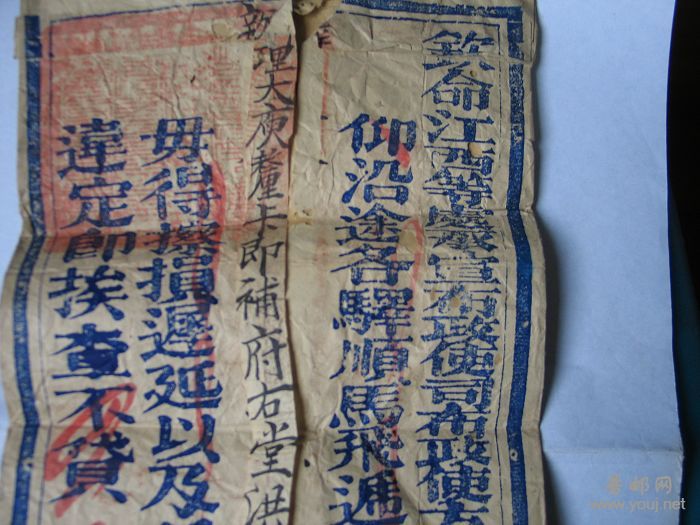 欽命江西等處承宣布政使司布政使
仰沿途各驛順馬飛遞
辦理大庾釐卡即補府右堂洪
毋得擦損遲延以及
違定即挨查不貸
www.youj.net